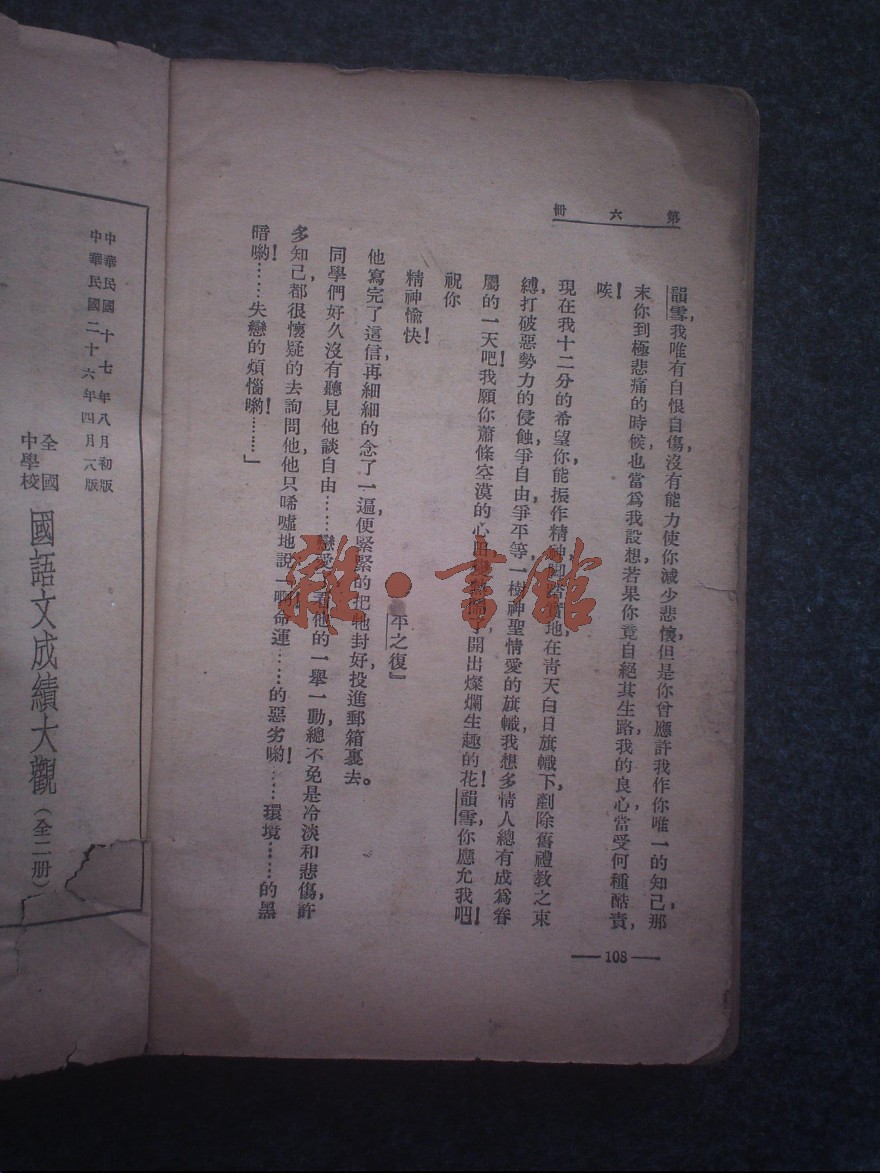 第六冊
韻雪,我唯有自恨自傷,沒有能力使你減少悲懷,但是你曾應許我作你唯一的知己,那
末你到極悲痛的時候,也當爲我設想,若果你竟自絕其生路,我的良心當受何種酷責,
唉!
現在我十二分的希望你,能振作精神,脚踏實地,在靑天白日旗幟下,剷除舊禮敎之束
縛,打破惡勢力的侵蝕,爭自由,爭平等,一樹神聖情愛的旗幟,我想多情人總有成爲眷
屬的一天吧!我願你蕭條空漠的心田開出燦爛生趣的花!韻雪,你應允我吧!
祝你
精神愉快!
平之復』
他寫完了這信,再細細的念了一遍,便緊緊的把牠封好,投進郵箱裏去。
同學們好久沒有聽見他談自由……戀愛看他的一舉一動,總不免是冷淡和悲傷,許
多知己,都很懷疑的去詢問他,他只唏噓地說:啊命運……的惡劣喲!……環境……的黑
暗喲!……失戀的煩惱喲!……」
108
雜·書館
中華民國十七年八月初版
中華民國二十六年四月六版
全國
中學校
國語文成績大觀(全二册)